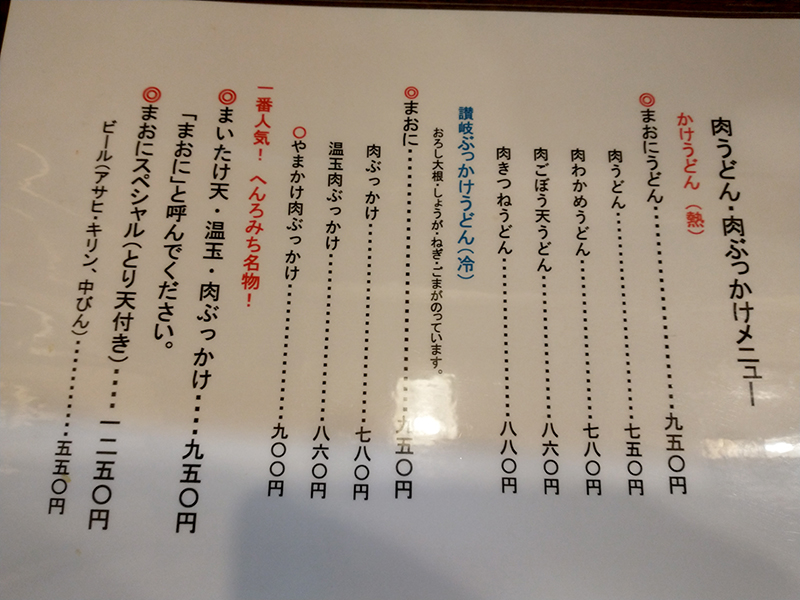 肉うどん・肉ぶっかけメニュー
かけうどん（熱）
◎まおにうどん・・・・・・・・・・・・・・・九五〇円
肉うどん・・・・・・・・・・・・・・・・七五〇円
肉わかめうどん・・・・・・・・・・・・・七八〇円
肉ごぼう天うどん・・・・・・・・・・・・八六〇円
肉きつねうどん・・・・・・・・・・・・・八八〇円
讃岐ぶっかけうどん（冷）
おろし大根・しょうが・ねぎ・ごまがのっています。
◎まおに・・・・・・・・・・・・・・・・・・・九五〇円
肉ぶっかけ・・・・・・・・・・・・・・・七八〇円
温玉肉ぶっかけ・・・・・・・・・・・・・八六〇円
〇やまかけ肉ぶっかけ・・・・・・・・・・・九〇〇円
一番人気！ へんろみち名物！
◎まいたけ天・温玉・肉ぶっかけ・・・・九五〇円
「まおに」と呼んでください。
◎まおにスペシャル（とり天付き）・・・・一二五〇円
ビール（アサヒ・キリン、中びん）・・・・・・・・・五五〇円